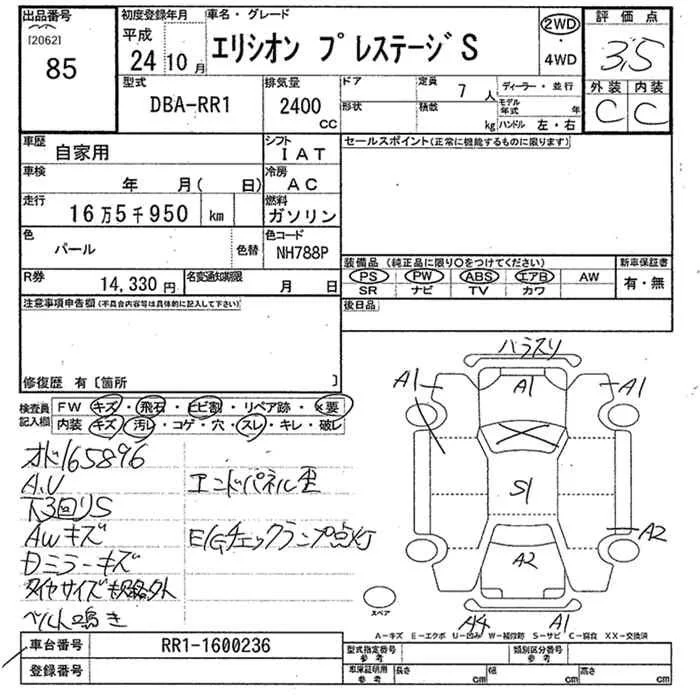 出品番号
[2062]
85
初度登録年月
平成
24 10 月
車名・グレード
エリシオン プレステージS
2WD
4WD
評価点
3,5
外装 内装
C C
型式
DBA-RR1
排気量
2400
CC
ドア
形状
定員 7 人
積数 kg
ディーラー・並行
モデル年式 年
ハンドル 左・右
車歴
自家用
シフト
IAT
車検
年 月( 日)
冷房
AC
走行
16万5千950 km
燃料
ガソリン
色
パール
色替
色コード
NH788P
R券
14,330 円
名変通知期限
月 日
セールスポイント(正常に機能するものに限ります)
装備品 (純正品に限り○をつけてください)
PS PW ABS エアB AW
SR ナビ TV カワ
新車保証書
有・無
後日品
注意事項申告欄(不具合内容等は具体的に記入して下さい)
修復歴 有〔箇所 〕
検査員記入欄
FW キズ・飛石・ヒビ割・リペア跡・×要
内装 キズ・汚レ・コゲ・穴・スレ・キレ・破レ
オド165896
A,U
下3回りS
AWキズ
Dミラーキズ
タイヤサイズ規格外
ベルト鳴き
エンドパネル歪
E/Gチェックランプ点灯
バラスリ
A1 A1 A1
S1
A2
A2
A4 A1
スペア
A-キズ E-エクボ U-凹み W-補修跡 S-サビ C-腐食 XX-交換済
車台番号
RR1-1600236
登録番号
型式指定番号
参考
類別区分番号
参考
車庫証明用
参考
長さ cm
幅 cm
高さ cm